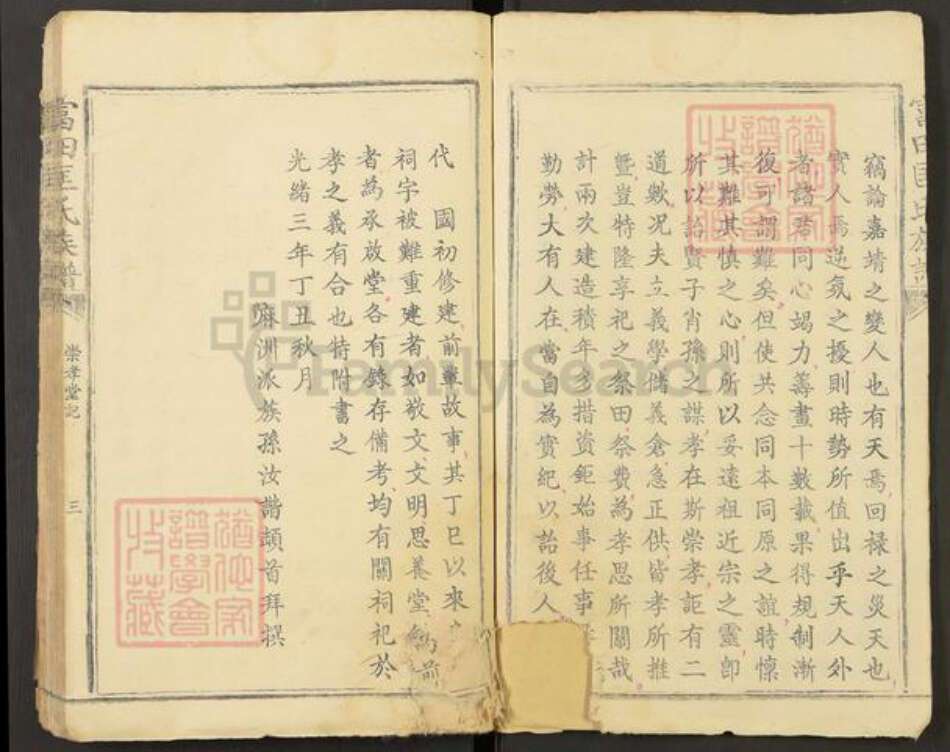 竊論嘉靖之變人也有天焉回祿之災天也
實人焉逆氛之擾則時勢所值出乎天人外
者諸君同心竭力籌畫十數載果得規制漸
復可謂難矣但使共念同本同原之誼時懍
其難其慎之心則所以妥遠祖近宗之靈即
所以詒賢子肖孫之謀孝在斯崇孝詎有二
道歟况夫立義學儲義倉急正供皆孝所推
暨豈特隆享祀之祭田祭費為孝思所關哉
計兩次建造積年多措資鉅始事任事
勤勞大有人在當自為實紀以詒後人
代 國初修建前輩故事其丁巳以來
祠宇被難重建者如敬文文明思養堂 為前
者為承啟堂各有錄存備考均有關祠祀於
孝之義有合也特附書之
光緒三年丁丑秋月
麻洲派族孫汝諧頓首拜撰
富田匡氏族譜
崇孝堂記
三
富田匡氏族譜
FamilySearch
譜學會
收藏
譜學會
收藏